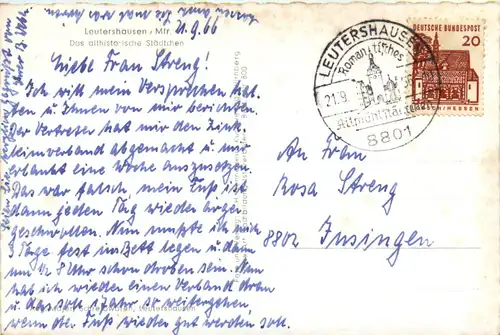 Leutershausen / Mfr.
Das althistorische Städtchen
21.9.66
Liebe Frau Streng!
Ich will mein Versprechen hal-
ten u Ihnen von mir berichten.
Der Vertreter hat mir den Zink-
leimverband abgemacht u mir
erlaubt eine Woche auszusetzen.
Das war falsch, mein Fuß ist
dann jeden Tag wieder ärger
geschwollen. Nun mußte ich mich
3 Tage fest ins Bett legen u dann
um ½ 8 Uhr schon droben sein. Nun
hab ich wieder einen Verband dran
u das soll 1 Jahr so weitergehen
wenn der Fuß wieder gut werden soll.
LEUTERSHAUSEN
Romantisches
21.9.
Altmühl
8801
DEUTSCHE BUNDESPOST
20
HESSEN
An Frau
Rosa Streng
8802 Insingen
Leutershausen